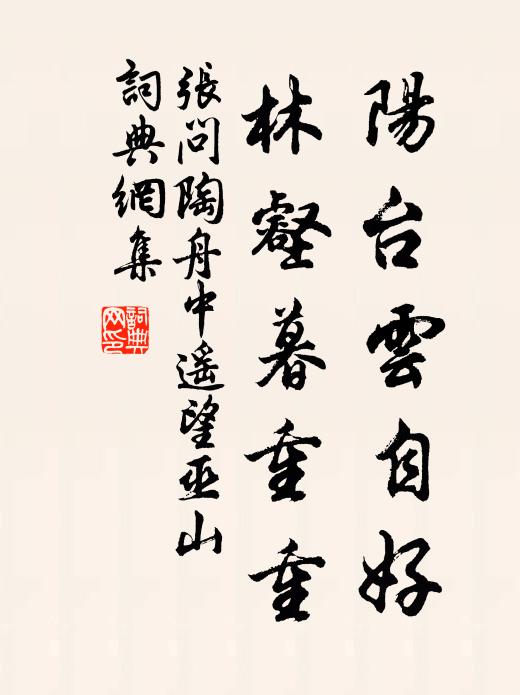 陽台雲自好
林壑暮重重
張問陶舟中遥望巫山
詞典網集
詞典网印